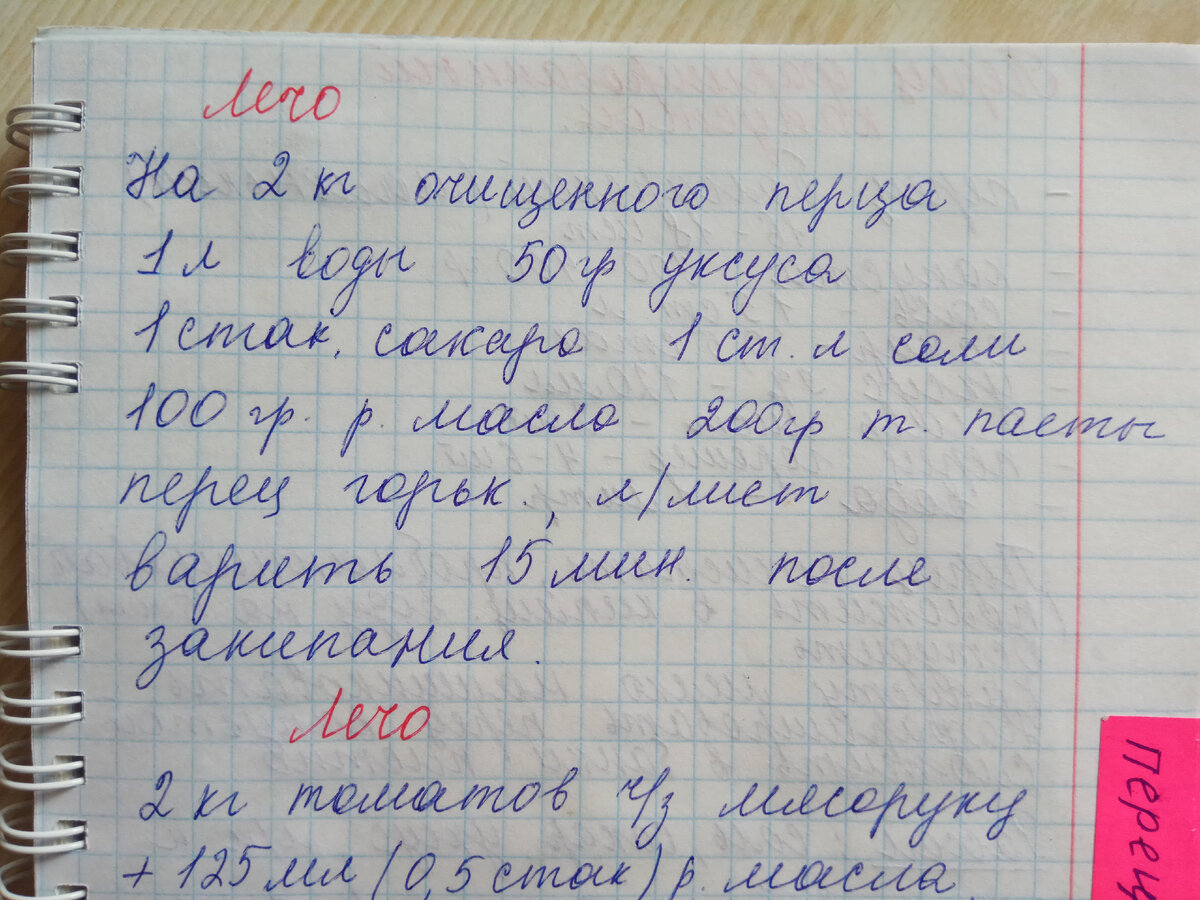 Лечо
На 2 кг очищенного перца
1 л воды 50 гр уксуса
1 стак. сахара 1 ст. л соли
100 гр. р. масла 200 гр т. пасты
перец горьк., л/лист
варить 15 мин. после
закипания.
Лечо
2 кг томатов ч/з мясоруку
+ 125 мл (0,5 стак) р. масла
Перец